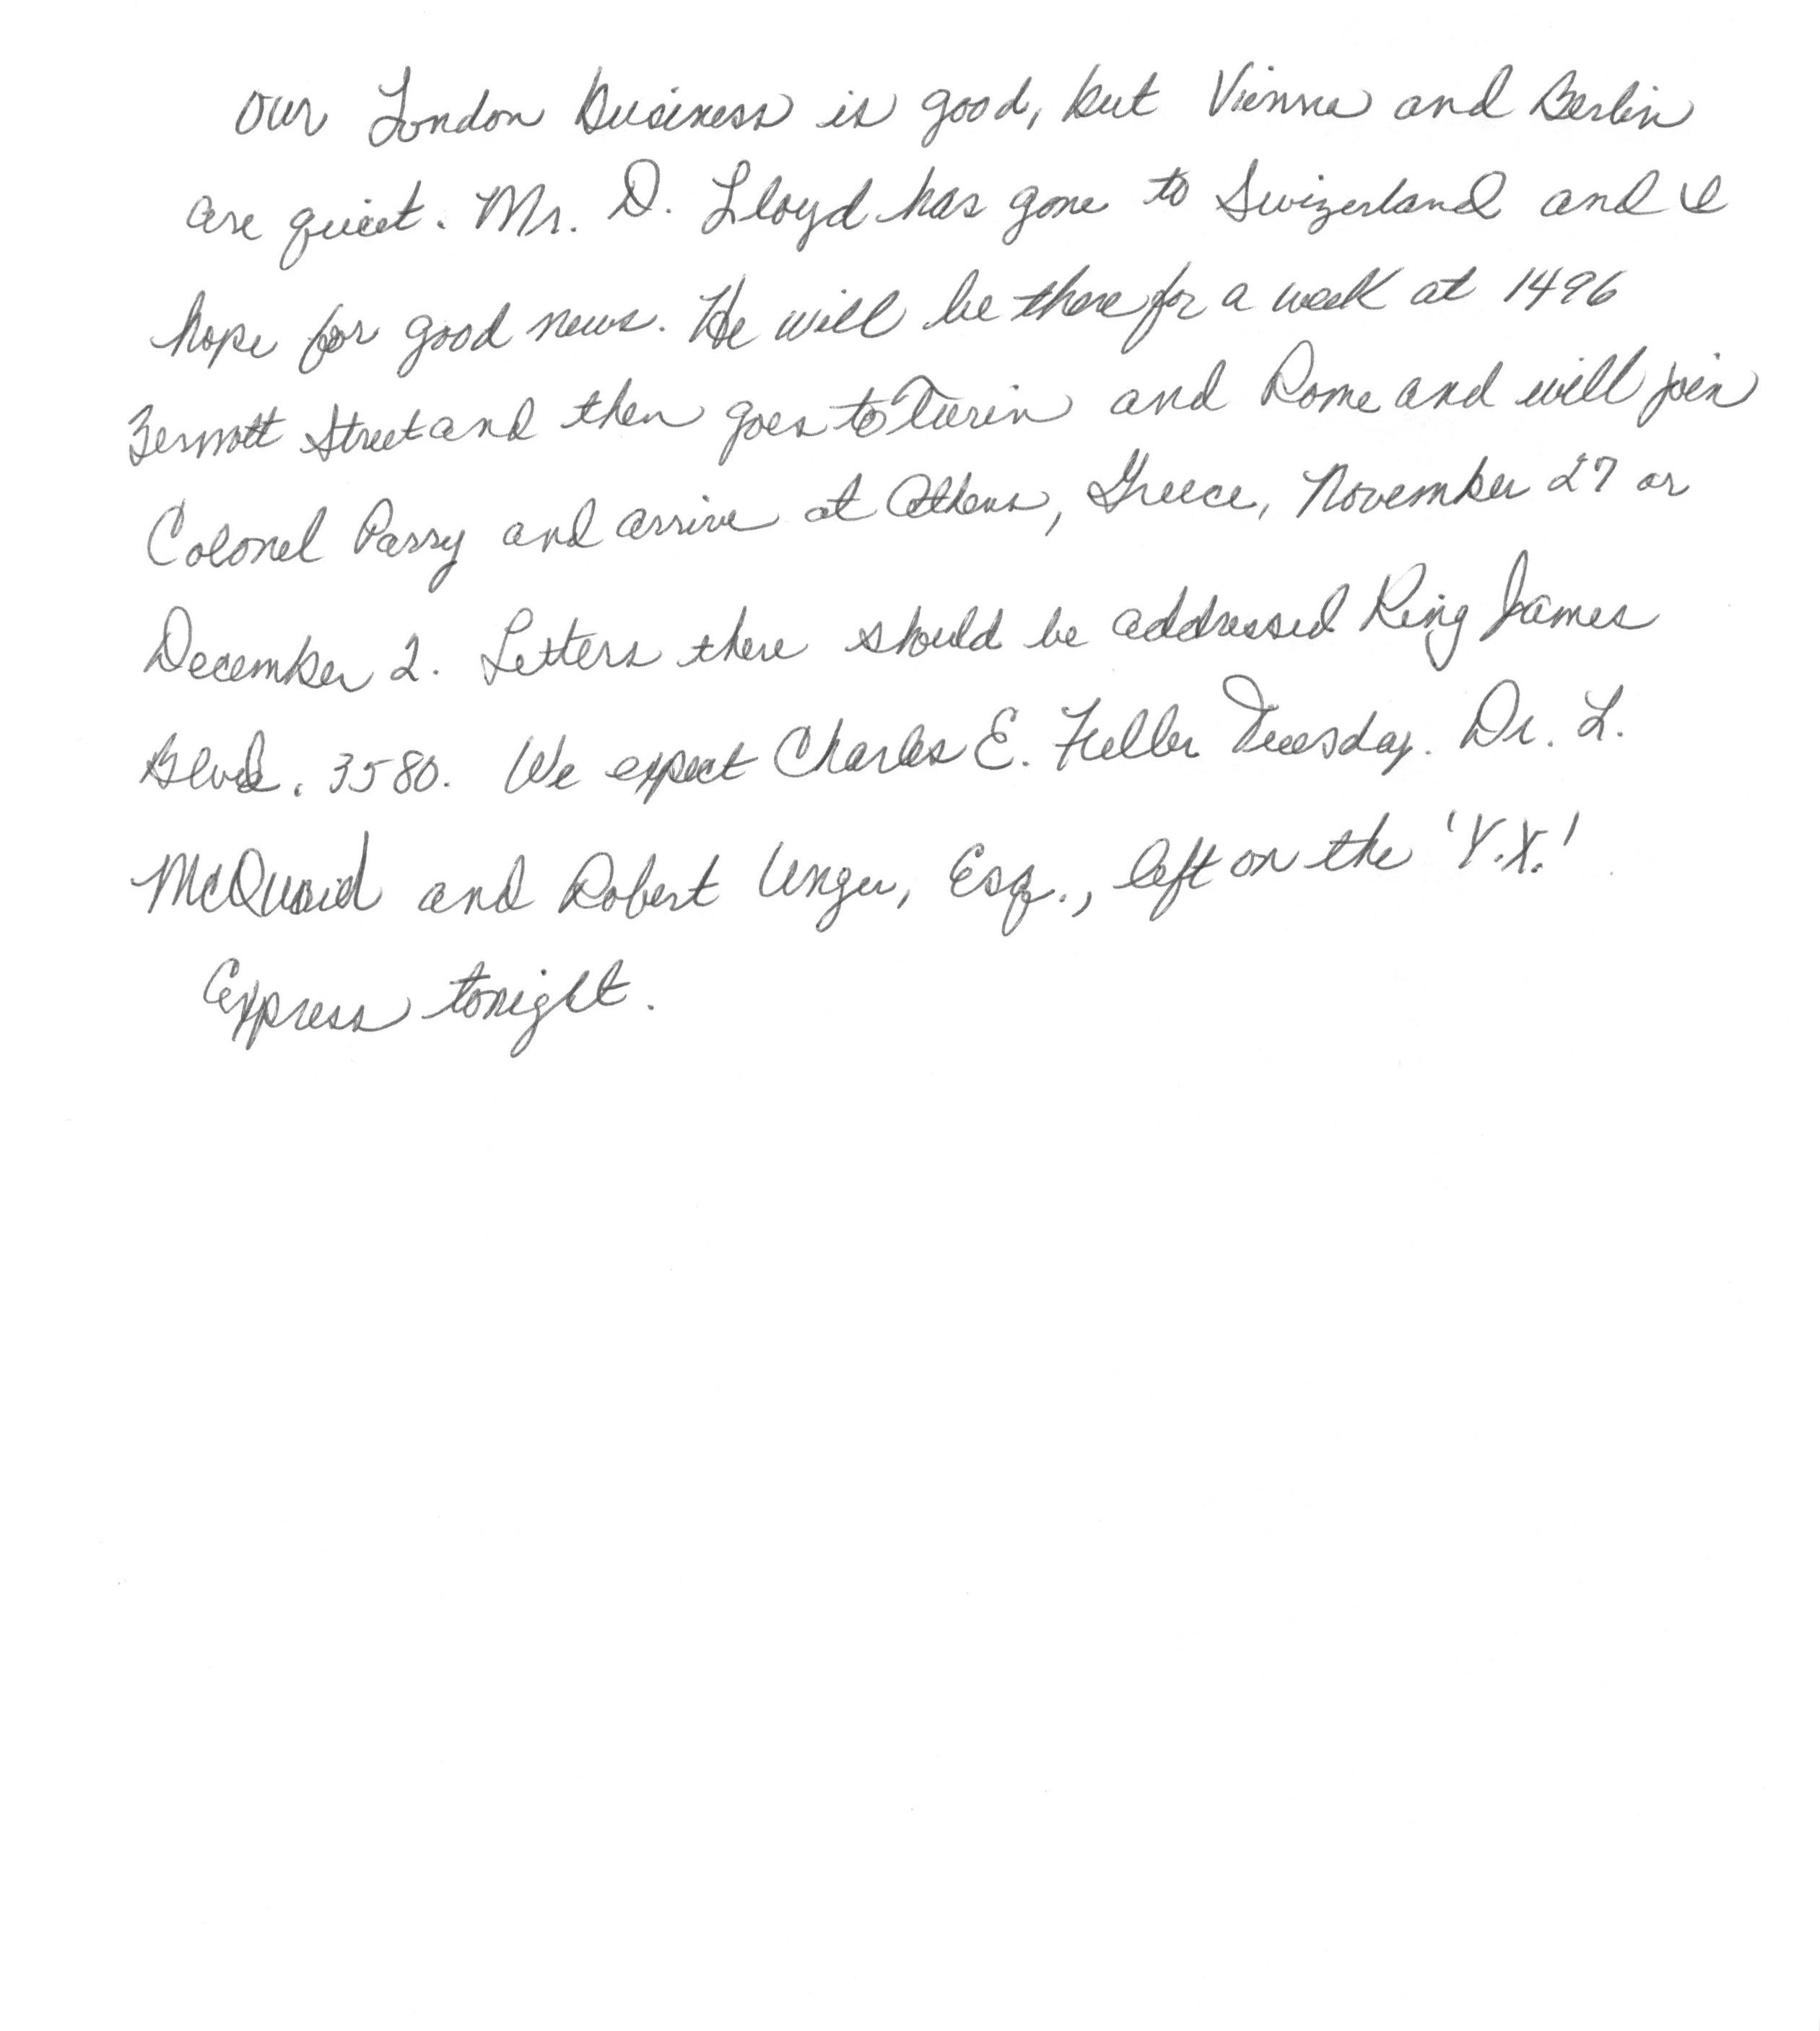 Our London business is good, but Vienna and Berlin
are quiet. Mr. D. Lloyd has gone to Swizerland and I
hope for good news. He will be there for a week at 1496
Zermott Street and then goes to Turin and Rome and will join
Colonel Parry and arrive at Athens, Greece, November 27 or
December 2. Letters there should be addressed King James
Blvd. 3580. We expect Charles E. Fuller Tuesday. Dr. L.
McQuaid and Robert Unger, Esq., left on the 'Y.X.'
Express tonight.